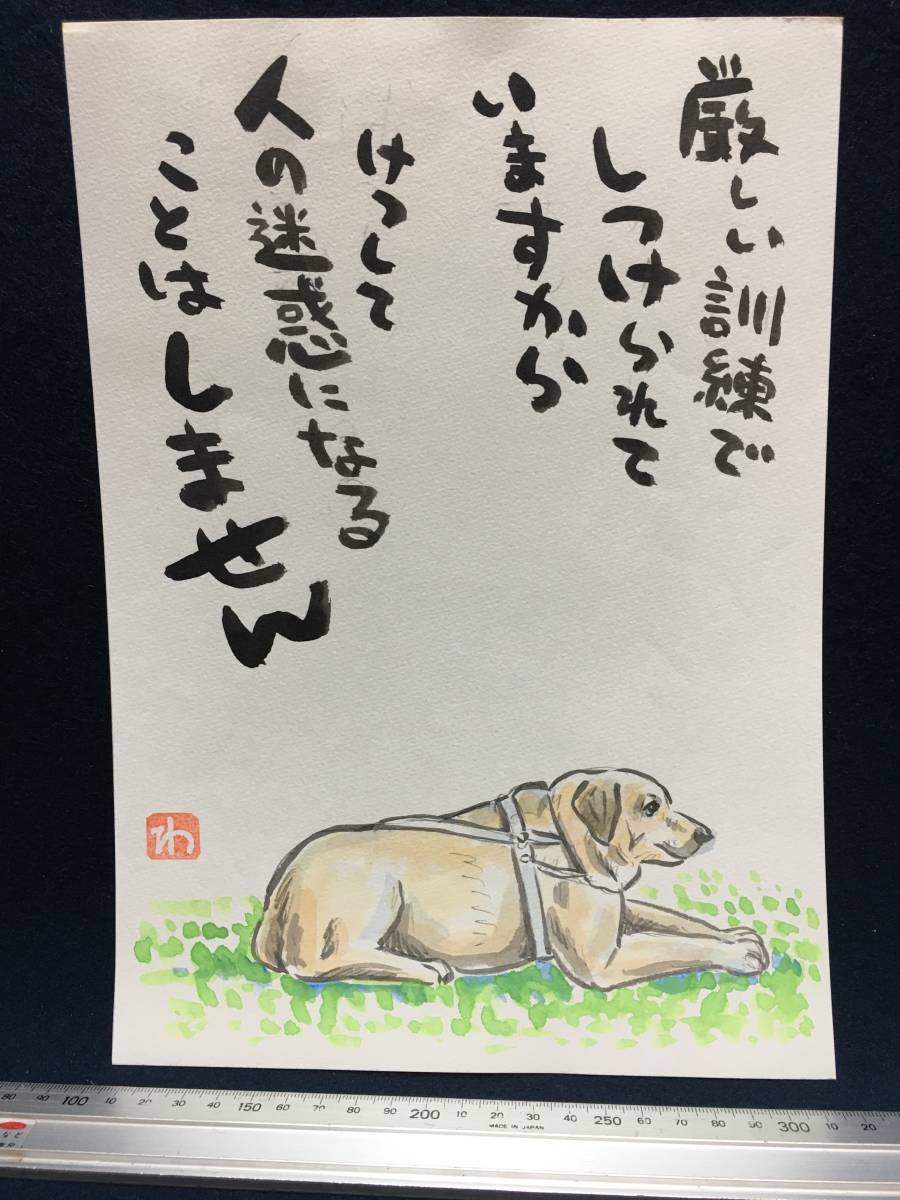 厳しい訓練で
しつけられて
いますから
けつして
人の迷惑になる
ことはしません
わ
80 90 100 10 20 30 40 150 60 70 80 90 200 10 20 30 40 250 60 70 80 90 300 10 20
MADE IN JAPAN